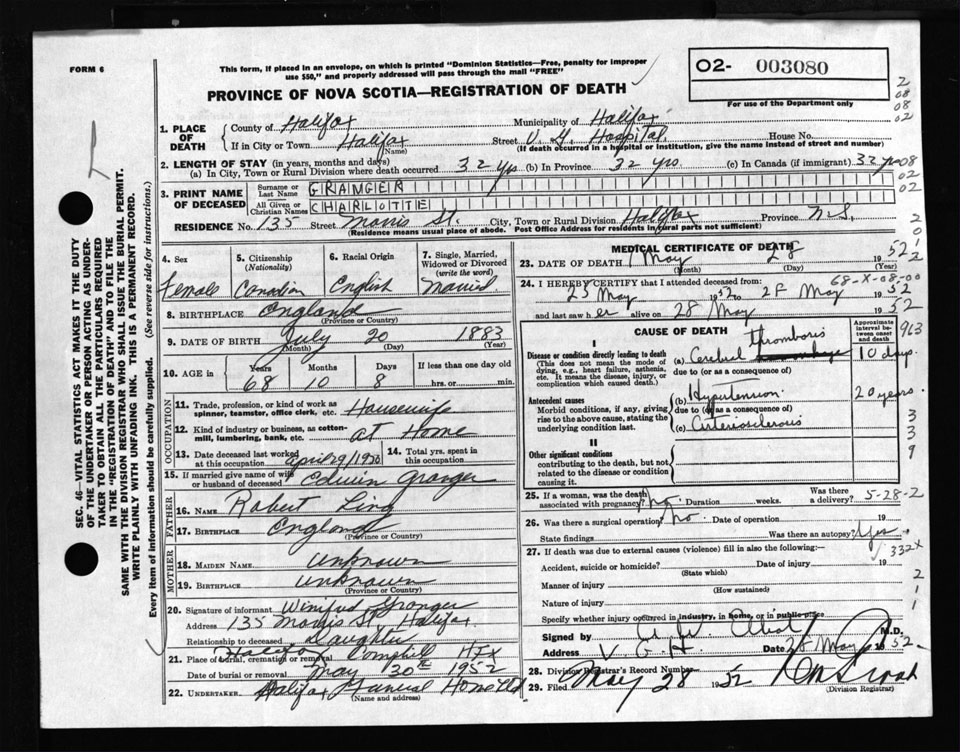 FORM 6
This form, if placed in an envelope, on which is printed "Dominion Statistics—Free, penalty for improper
use $50," and properly addressed will pass through the mail "FREE"
O2- 003080
For use of the Department only
PROVINCE OF NOVA SCOTIA—REGISTRATION OF DEATH
2
08
08
02
1. PLACE OF DEATH County of Halifax Municipality of Halifax
If in City or Town Halifax (Name) Street V. G. Hospital House No.
(If death occurred in a hospital or institution, give the name instead of street and number)
2. LENGTH OF STAY (in years, months and days)
(a) In City, Town or Rural Division where death occurred 32 yrs (b) In Province 32 yrs. (c) In Canada (if immigrant) 32 yrs 08
02
02
3. PRINT NAME OF DECEASED Surname or Last Name GRANGER
All Given or Christian Names CHARLOTTE
RESIDENCE No. 135 Street Morris St. City, Town or Rural Division Halifax Province N.S.
(Residence means usual place of abode. Post Office Address for residents in rural parts not sufficient)
4. Sex Female
5. Citizenship (Nationality) Canadian
6. Racial Origin English
7. Single, Married, Widowed or Divorced (write the word) Married
8. BIRTHPLACE England
(Province or Country)
9. DATE OF BIRTH July 20 1883
(Month) (Day) (Year)
10. AGE in Years 68 Months 10 Days 8 If less than one day old hrs. or min.
OCCUPATION
11. Trade, profession or kind of work as spinner, teamster, office clerk, etc. Housewife
12. Kind of industry or business, as cotton-mill, lumbering, bank, etc. at Home
13. Date deceased last worked at this occupation April 29/1920 14. Total yrs. spent in this occupation
15. If married give name of wife or husband of deceased Edwin Granger
FATHER
16. NAME Robert Ling
17. BIRTHPLACE England
(Province or Country)
MOTHER
18. MAIDEN NAME Unknown
19. BIRTHPLACE Unknown
(Province or Country)
20. Signature of informant Winifred Granger
Address 135 Morris St. Halifax.
Relationship to deceased Daughter
21. Place of burial, cremation or removal Halifax Hfx
Date of burial or removal May 30th 1952
22. UNDERTAKER Halifax Funeral Home Ltd
(Name and address)
MEDICAL CERTIFICATE OF DEATH
23. DATE OF DEATH May 28 1952
(Month) (Day) (Year)
68-X-08-00
24. I HEREBY CERTIFY that I attended deceased from:
25 May 1952 to 28 May 1952
and last saw her alive on 28 May 1952
CAUSE OF DEATH
Approximate interval between onset and death
963
I
Disease or condition directly leading to death
(This does not mean the mode of dying, e.g., heart failure, asthenia, etc. It means the disease, injury, or complication which caused death.)
(a) Cerebral thrombosis 10 days
due to (or as a consequence of)
Antecedent causes
Morbid conditions, if any, giving rise to the above cause, stating the underlying condition last.
(b) Hypertension 20 years
due to (or as a consequence of)
(c) Arteriosclerosis
3
3
9
II
Other significant conditions
contributing to the death, but not related to the disease or condition causing it.
25. If a woman, was the death associated with pregnancy? no. Duration weeks. Was there a delivery? 5-28-2
26. Was there a surgical operation? no. Date of operation 19
State findings Was there an autopsy? Yes
27. If death was due to external causes (violence) fill in also the following:—
332X
Accident, suicide or homicide? Date of injury 19
(State which)
Manner of injury
(How sustained)
Nature of injury
2
1
1
Specify whether injury occurred in industry, in home, or in public place
Signed by M.D.
Address V. G. H. Date 28 May 1952
28. Division Registrar's Record Number
29. Filed May 28 1952
(Division Registrar)
SEC. 46—VITAL STATISTICS ACT MAKES IT THE DUTY
OF THE UNDERTAKER OR PERSON ACTING AS UNDER-
TAKER TO OBTAIN ALL THE PARTICULARS REQUIRED
IN THE "REGISTRATION OF DEATH" AND TO FILE THE
SAME WITH THE DIVISION REGISTRAR WHO SHALL ISSUE THE BURIAL PERMIT.
WRITE PLAINLY WITH UNFADING INK. THIS IS A PERMANENT RECORD.
Every item of information should be carefully supplied. (See reverse side for instructions.)